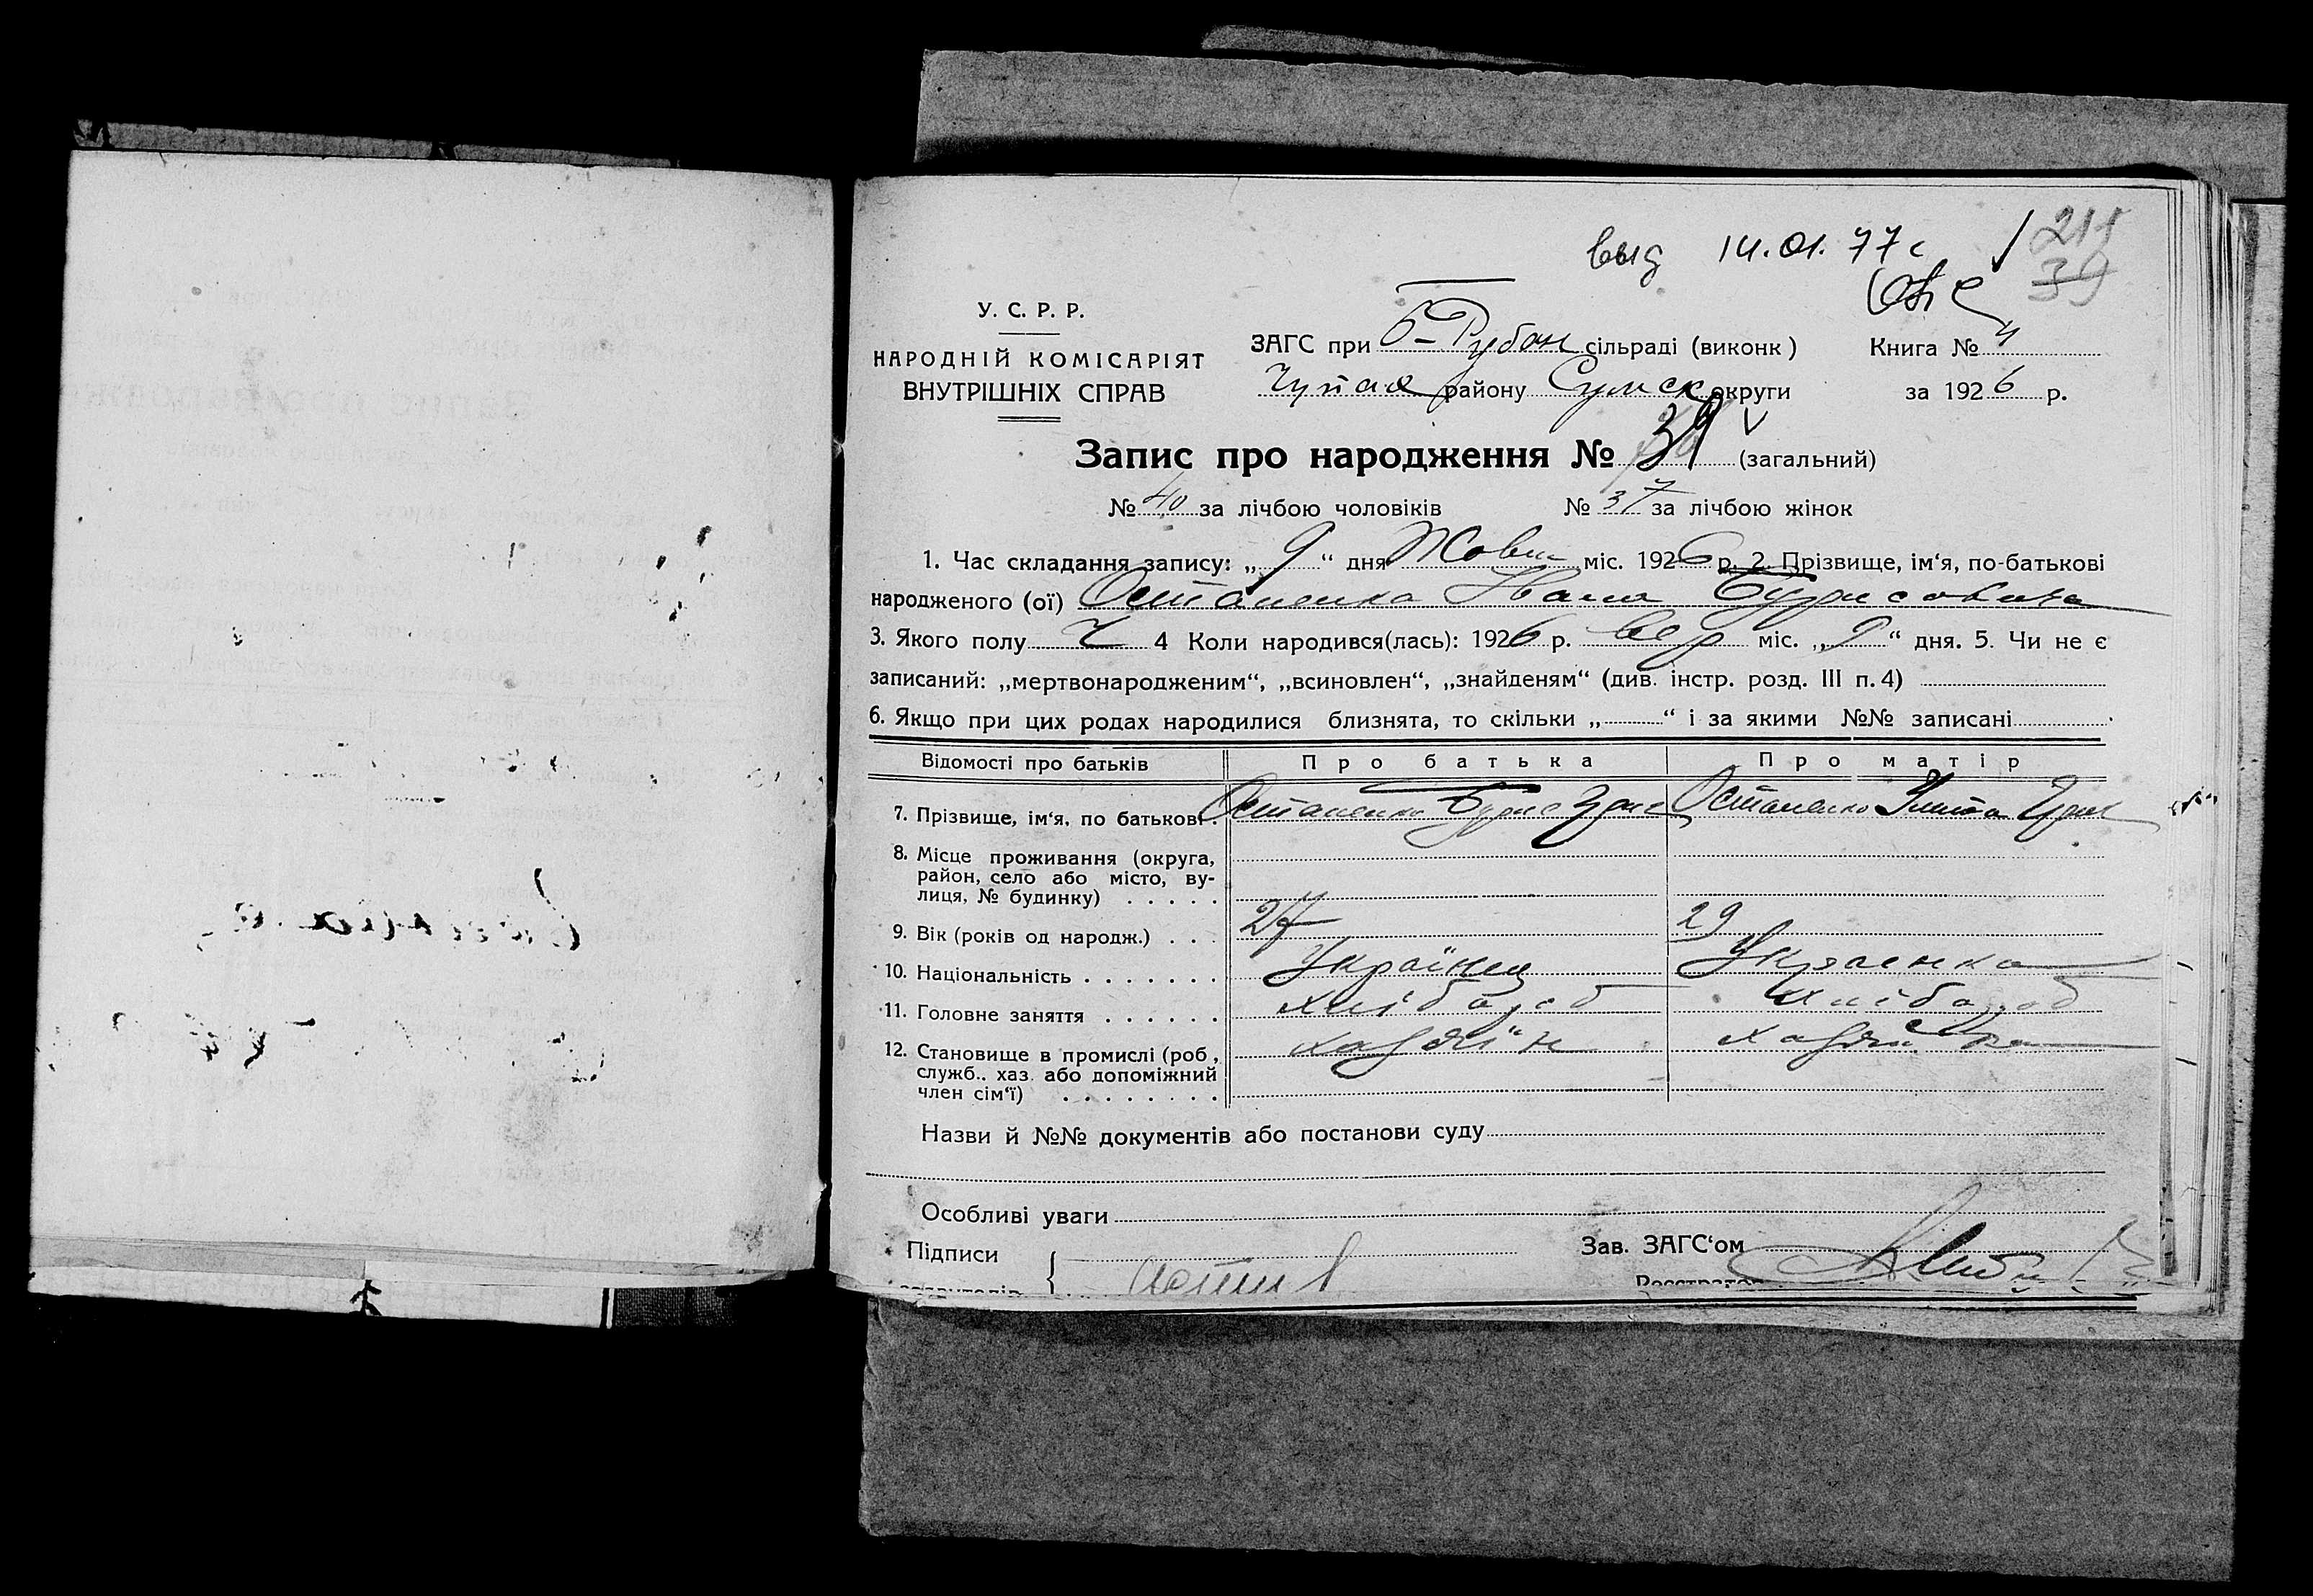 выд 14.01.77 г 211
39
У. С. Р. Р.
НАРОДНІЙ КОМІСАРІЯТ
ВНУТРІШНІХ СПРАВ
ЗАГС при Б-Рубан сільраді (виконк) Книга № 4
району Сумск округи за 1926 р.
Запис про народження № 39 (загальний)
№ 40 за лічбою чоловіків № 37 за лічбою жінок
1. Час складання запису: „9“ дня Жовт міс. 1926 р. 2. Прізвище, ім‘я, по-батькові
народженого (ої) Остапенко Ивана
3. Якого полу Ч 4 Коли народився(лась): 1926 р. вер міс. „9“ дня. 5. Чи не є
записаний: „мертвонародженим“, „всиновлен“, „знайденям“ (див. інстр. розд. III п. 4)
6. Якщо при цих родах народилися близнята, то скільки „ “ і за якими №№ записані
Відомості про батьків Про батька Про матір
7. Прізвище, ім‘я, по батькові. Остапенко Остапенко
8. Місце проживання (округа,
район, село або місто, ву-
лиця, № будинку) . . . . .
9. Вік (років од народж.) . . . 27 29
10. Національність . . . . . . . Українец Украенка
11. Головне заняття . . . . . . хлібороб хлібороб
12. Становище в промислі (роб,
служб.. хаз. або допоміжний
член сім‘ї) . . . . . . . .
хазяїн хазяйка
Назви й №№ документів або постанови суду
Особливі уваги
Підписи
Зав. ЗАГС‘ом
Реєстратор